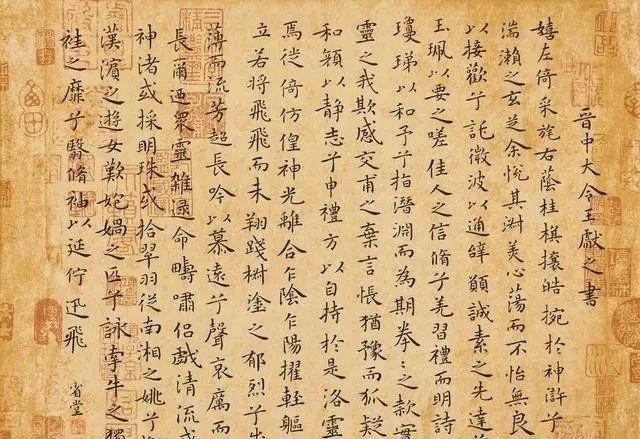 晉中大令王獻之書
嬉左倚采旄右蔭桂旗攘皓捥於神滸兮
湍瀨之玄芝余悅其淑美心蕩而不怡無良
以接歡兮託微波以通辭願誠素之先達
玉珮以要之嗟佳人之信脩兮羌習禮而明詩
瓊珶以和予兮指潛淵而為期拳〻之款實
靈之我欺感交甫之棄言悵猶豫而狐疑
和顏以靜志兮申禮方以自持於是洛靈
焉徙倚仿偟神光離合乍陰乍陽擢輕軀
立若將飛飛而未翔踐椒塗之郁烈兮
薄而流芳超長吟以慕遠兮聲哀厲而
長爾迺眾靈雜遝命疇嘯侶戲清流或
神渚或採明珠或拾翠羽從南湘之姚兮
漢濱之遊女歎媧之匹兮詠牽牛之獨
袿之靡兮翳脩袖以延佇迅飛
省堂